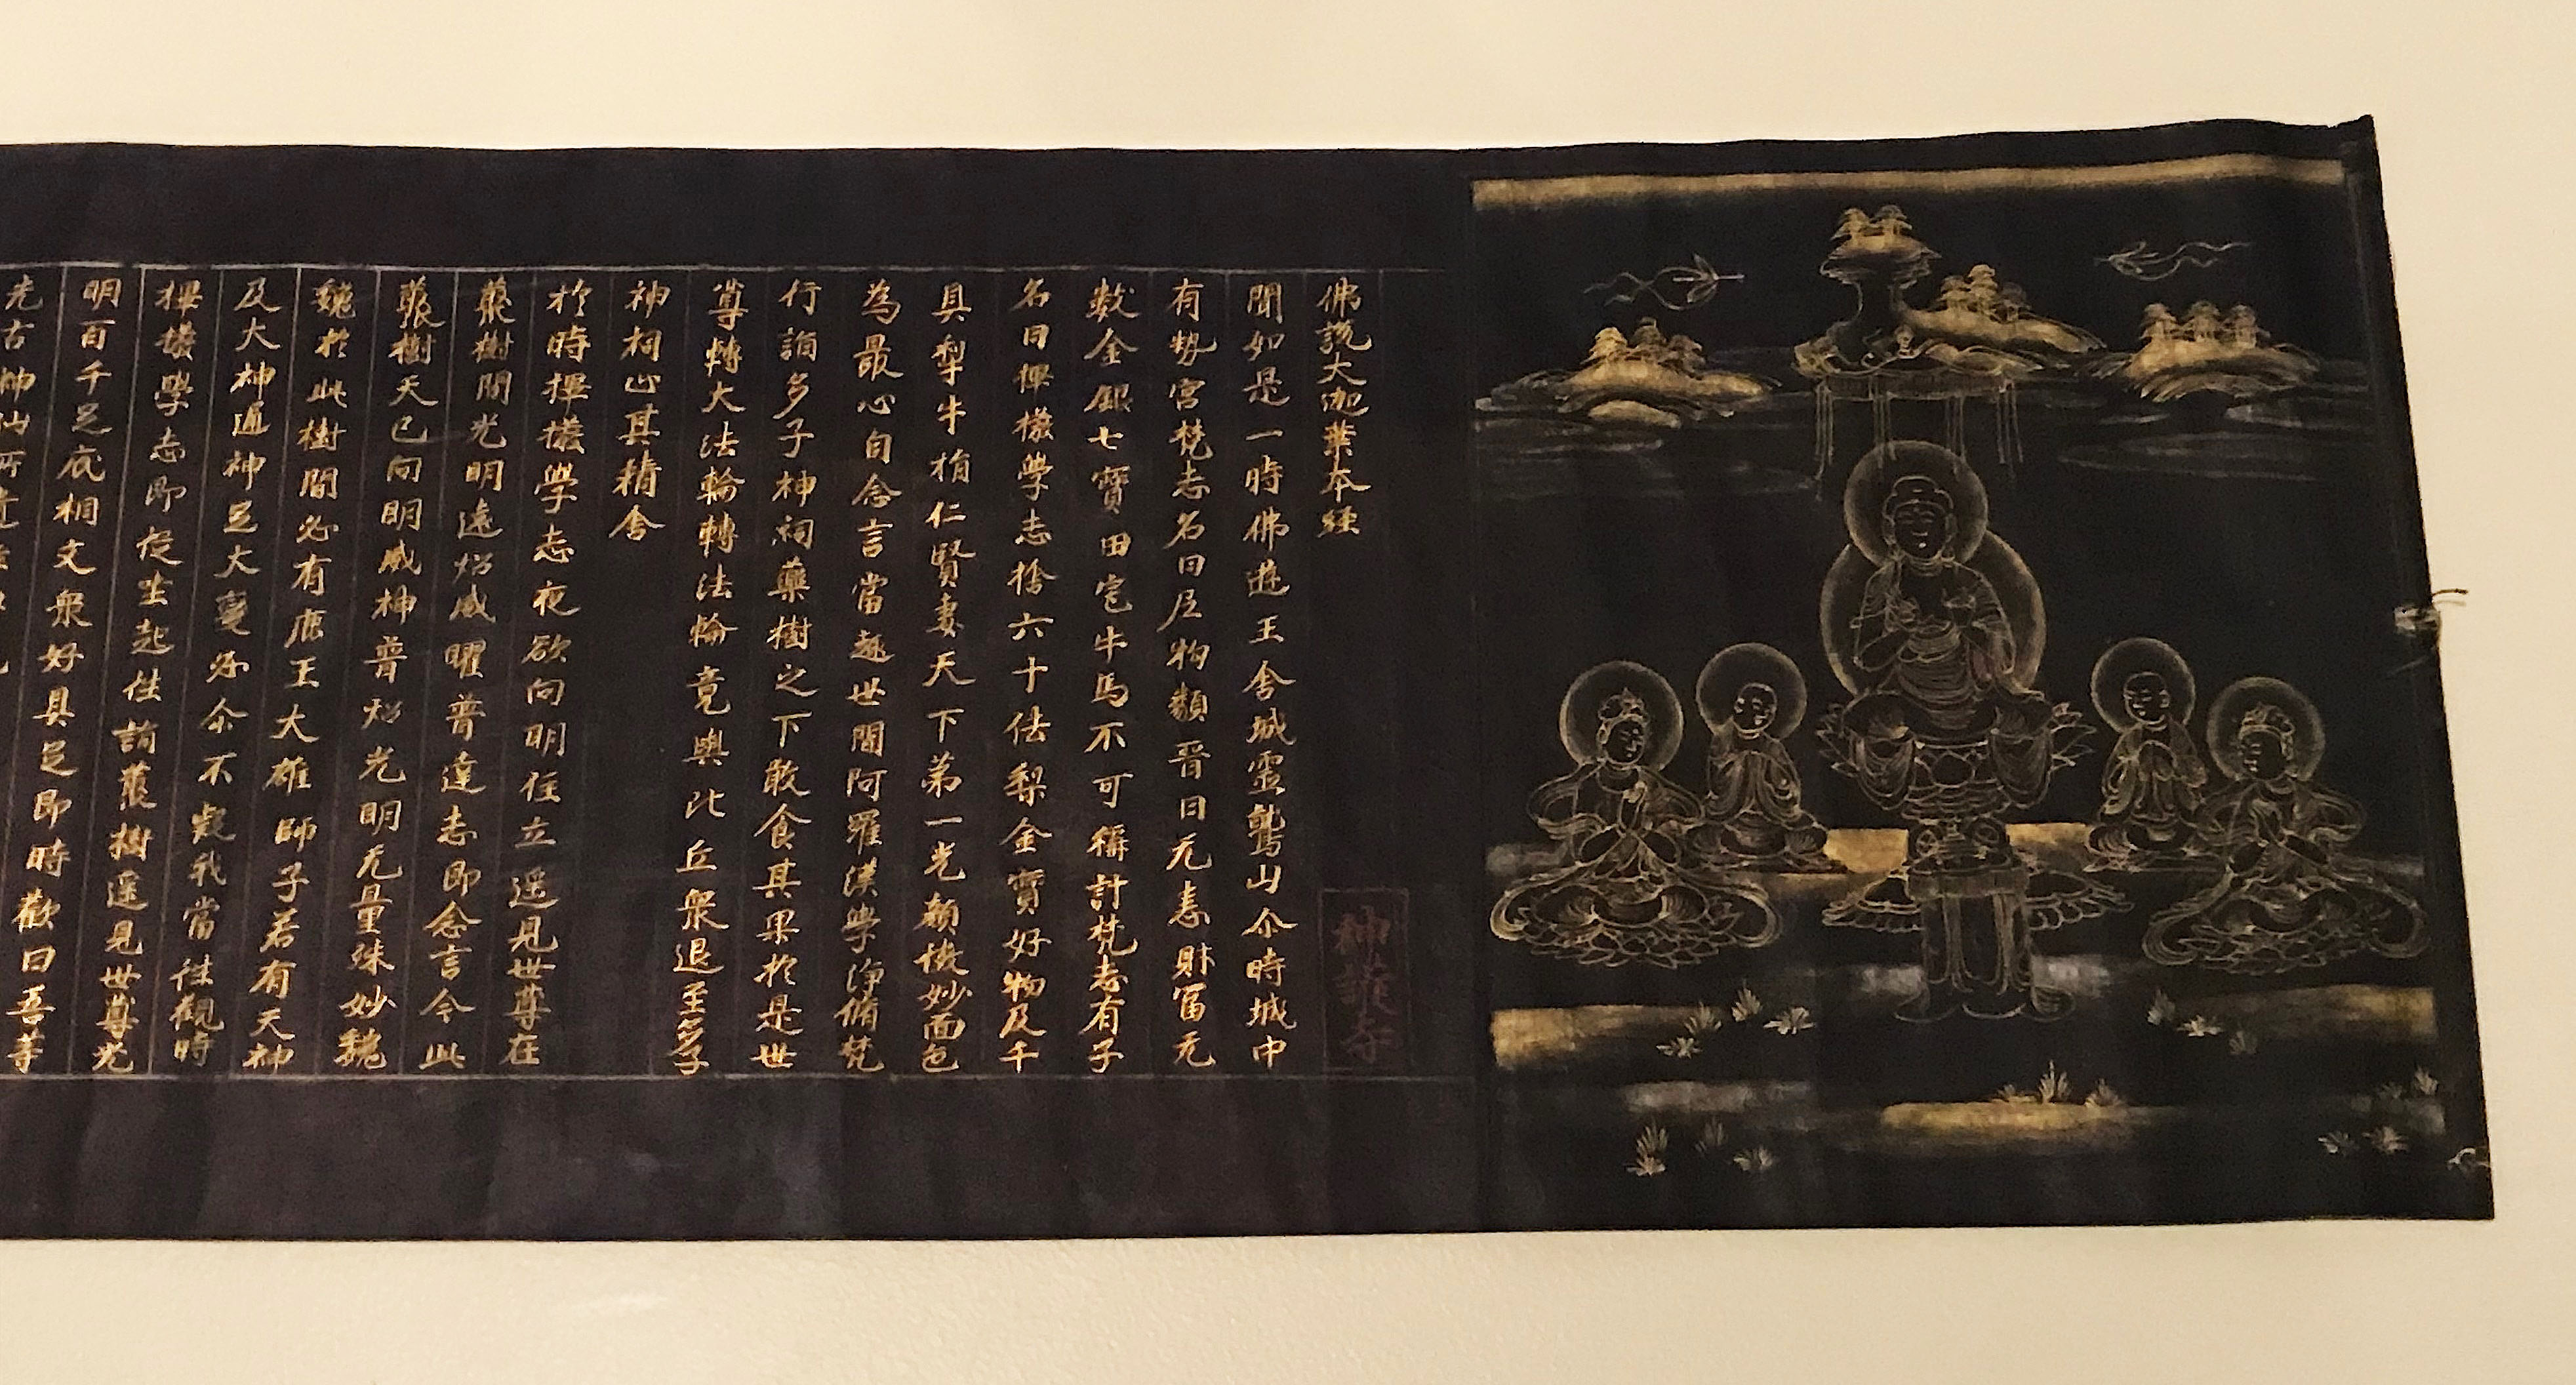 佛説大迦葉本經
神護寺
聞如是一時佛遊王舍城靈鷲山尒時城中
有勢富梵志名曰尼拘類晋曰无恚財富无
數金銀七寶田宅牛馬不可稱計梵志有子
名曰樿檨學志捨六十佉梨金寶好物及千
具犁牛捐仁賢妻天下第一光顏機妙面色
為最心自念言當趣世間阿羅漢學淨脩梵
行詣多子神祠藥樹之下噉食其果於是世
尊轉大法輪轉法輪竟與比丘衆退至多子
神祠心其精舍
於時樿檨學志夜欲向明住立遥見世尊在
藂樹間光明遠炤威曜普達志即念言今此
藂樹天已向明威神普炤光明无量殊妙巍
巍於此樹間必有鹿王大雄師子若有天神
及大神通神足大變炁尒不疑我當往觀時
樿檨學志即從坐起往詣藂樹遥見世尊光
明百千足底相文衆好具足即時歡曰吾等
先古神仙所